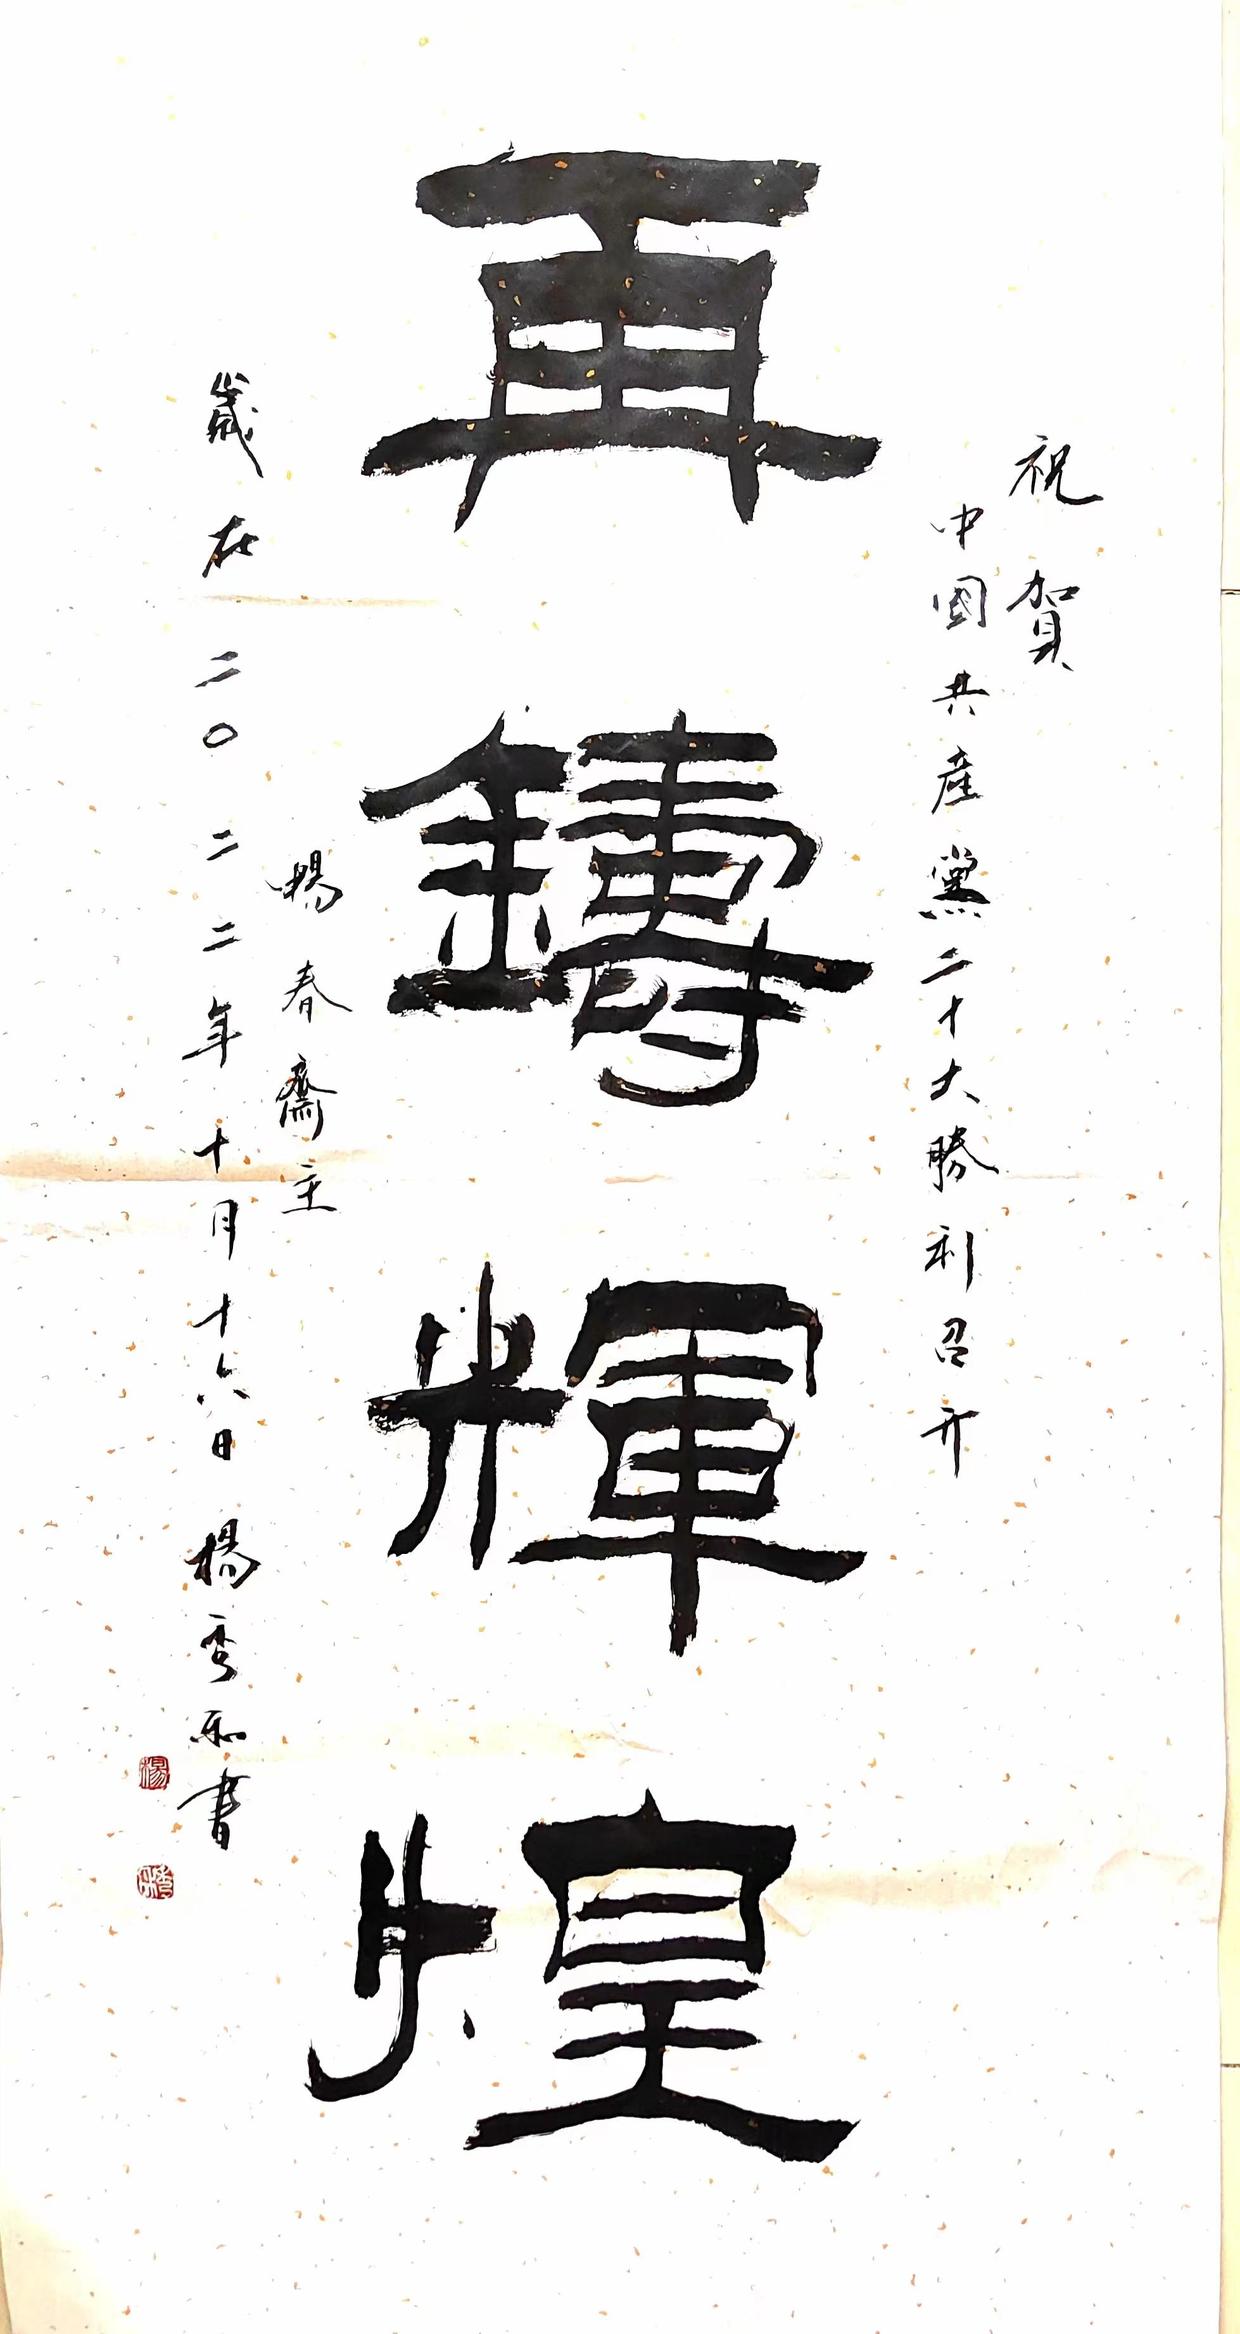 祝賀
中國共産黨二十大勝利召开
再鑄輝煌
暢春齋主
歲在二〇二二年十月十六日楊秀和書
楊
秀和